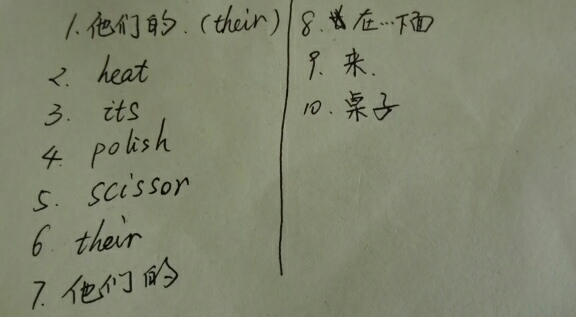 1. 他们的. (their)
2. heat
3. its
4. polish
5. scissor
6 their
7. 他们的
8. 在…下面
9. 来.
10. 桌子